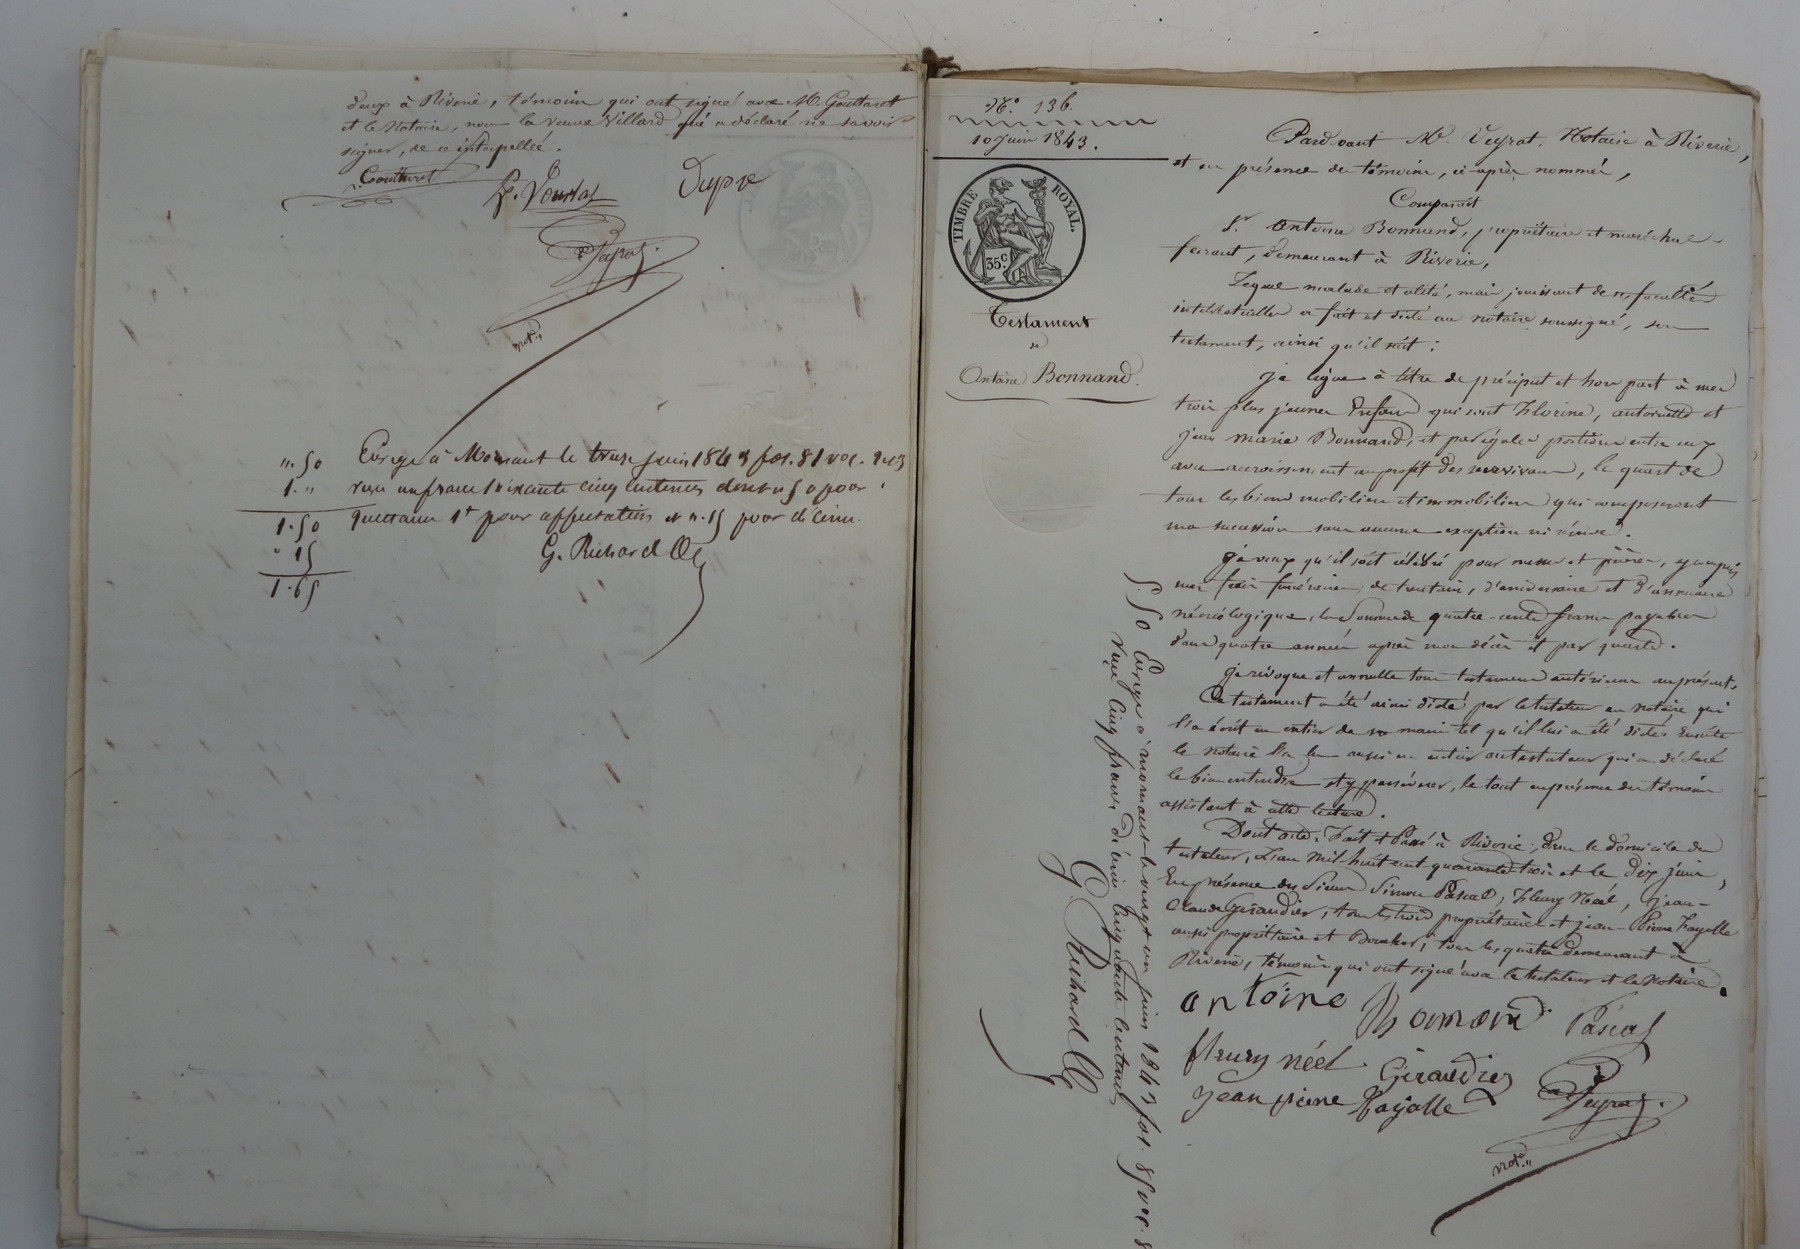 deux à Riverie, témoins qui ont signé avec M. Gouttaret
et le Notaire, non la veuve Villard qui a déclaré ne savoir
signer, de ce interpellée.
Gouttaret
Dupre
Veyrat
not.
Enregé à Mornant le treize juin 1843 fol. 81
reçu un franc soixante cinq centimes dont 50 pour
quittance 1f pour affectation et ". 15 pour décime.
G. Richard
". 50
1. "
1. 50
" 15
1. 65
N.° 136.
10 juin 1843.
TIMBRE ROYAL.
35 c.
Testament
de
Antoine Bonnand.
Pardvant M.e Veyrat, Notaire à Riverie,
et en présence des témoins, ci-après nommés,
Comparait
S.r Antoine Bonnand, propriétaire et maréchal
ferrant, demeurant à Riverie,
Lequel malade et alité, mais jouissant de ses facultés
intellectuelles a fait et dicté au notaire soussigné, son
testament, ainsi qu'il suit :
je lègue à titre de préciput et hors part à mes
trois plus jeunes Enfans qui sont Florine, antoinette et
jean marie Bonnand, et par égales portions entre eux
avec accroissement au profit des survivans, le quart de
tous les biens mobiliers et immobiliers qui composeront
ma succession sans aucune exception ni réserve.
je veux qu'il soit célébré pour messes et prières, y compris
mes frais funéraires, de trentain, d'aniversaire et d'annuaire
nécrologique, la Somme de quatre-cents francs payables
dans quatre années après mon décès et par quarts.
je révoque et annulle tous testamens antérieurs au présent.
Ce testament a été ainsi dicté par le testateur au notaire qui
l'a écrit en entier de sa main tel qu'il lui a été dicté. Ensuite
le notaire l'a lu aussi en entier au testateur qui a déclaré
le bien entendre et y persévérer, le tout en présence des témoins
assistant à cette lecture.
Dont acte, Fait et Passé à Riverie, dans le domicile du
testateur, L'an Mil-huit cent quarante-trois et le Dix juin,
En présence des Sieurs Simon Pascal, Fleury Néel, jean-
Claude Giraudier, tous trois propriétaires et jean-Pierre Fayolle
aussi propriétaire et Boucher, tous les quatre demeurant à
Riverie, témoins qui ont signé avec le testateur et le Notaire.
antoine Bonnand Pascal
fleury néel Giraudier Veyrat
jean pierre Fayolle
not.
5. 50 Enregé à mornant le vingt un juin 1843 fol. 85
reçu cinq francs décime cinquante centimes
G. Richard